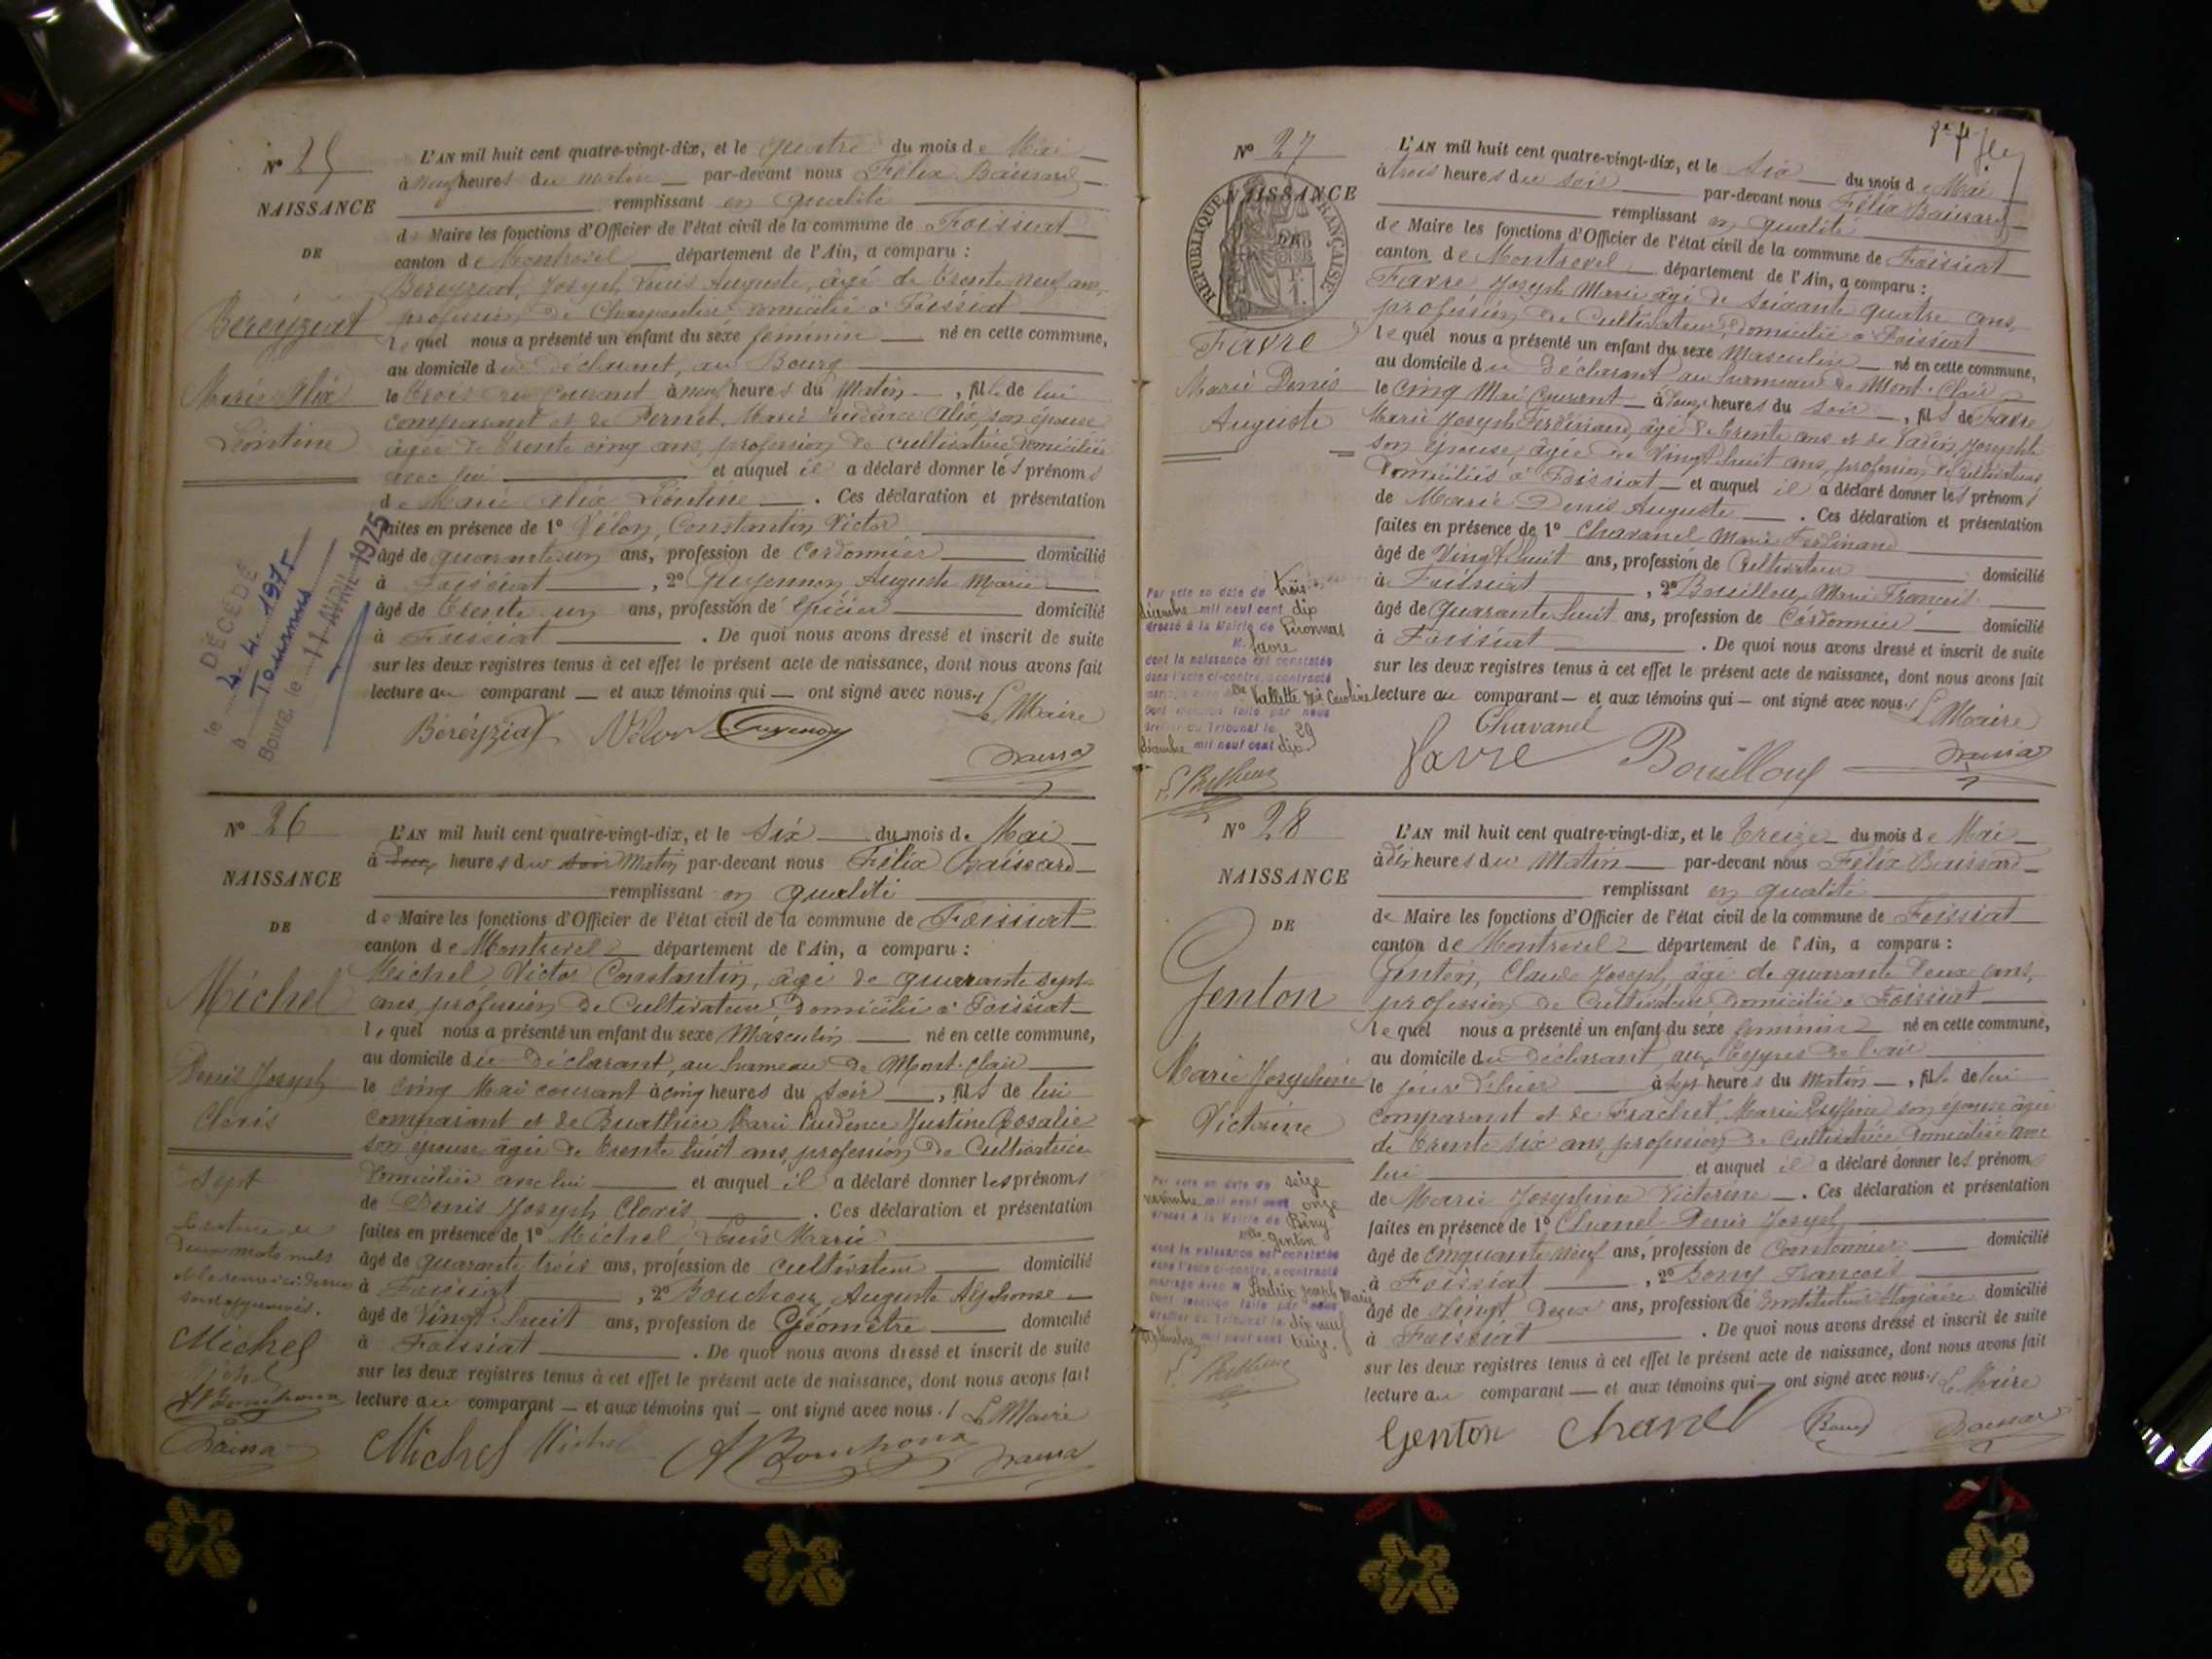 N° 25
NAISSANCE
DE
Béréyziat
Marie Alix
Léontine
L'AN mil huit cent quatre-vingt-dix, et le quatre du mois de Mai
à neuf heures du matin par-devant nous Félix Baissard
remplissant en qualité
de Maire les fonctions d'Officier de l'état civil de la commune de Foissiat
canton de Montrevel département de l'Ain, a comparu :
Béréyziat, Joseph Louis Auguste, âgé de trente neuf ans,
profession de Charpentier domicilié à Foissiat
lequel nous a présenté un enfant du sexe féminin né en cette commune,
au domicile du déclarant, au Bourg
le trois du courant à neuf heures du Matin, fille de lui
comparant et de Pernet, Marie Prudence Alix, son épouse
âgée de trente cinq ans, profession de cultivatrice domiciliée
avec lui et auquel il a déclaré donner les prénoms
de Marie Alix Léontine. Ces déclaration et présentation
faites en présence de 1° Vélon, Constantin Victor
âgé de quarante un ans, profession de Cordonnier domicilié
à Foissiat, 2° Guyennon Auguste Marie
âgé de trente un ans, profession de épicier domicilié
à Foissiat. De quoi nous avons dressé et inscrit de suite
sur les deux registres tenus à cet effet le présent acte de naissance, dont nous avons fait
lecture au comparant et aux témoins qui ont signé avec nous. Le Maire
Béréyziat Vélon Guyennon
DÉCÉDÉ
le 4.4.1975
à Tournus
Bourg, le 11 AVRIL 1975
N° 26
NAISSANCE
DE
Michel
Denis Joseph
Cloris
L'AN mil huit cent quatre-vingt-dix, et le Six du mois de Mai
à heures du soir Matin par-devant nous Félix Baissard
remplissant en qualité
de Maire les fonctions d'Officier de l'état civil de la commune de Foissiat
canton de Montrevel département de l'Ain, a comparu :
Michel, Victor Constantin, âgé de quarante sept
ans, profession de Cultivateur, domicilié à Foissiat
lequel nous a présenté un enfant du sexe Masculin né en cette commune,
au domicile du déclarant, au hameau de Mont-Clair
le cinq Mai courant à cinq heures du soir, fils de lui
comparant et de Buathier Marie Prudence Justine Rosalie
son épouse âgée de trente huit ans, profession de Cultivatrice
domiciliée avec lui et auquel il a déclaré donner les prénoms
de Denis Joseph Cloris. Ces déclaration et présentation
faites en présence de 1° Michel Louis Marie
âgé de quarante trois ans, profession de cultivateur domicilié
à Foissiat, 2° Bouchoux Auguste Alphonse
âgé de Vingt huit ans, profession de Géomètre domicilié
à Foissiat. De quoi nous avons dressé et inscrit de suite
sur les deux registres tenus à cet effet le présent acte de naissance, dont nous avons fait
lecture au comparant et aux témoins qui ont signé avec nous. / Le Maire
Michel Michel A Bouchoux
Sept
La rature de
deux mots nuls
et le renvoi ci-dessus
sont approuvés.
Michel
Michel
A Bouchoux
N° 27
NAISSANCE
DE
REPUBLIQUE FRANÇAISE
Favre
Marie Denis
Auguste
L'AN mil huit cent quatre-vingt-dix, et le six du mois de Mai
à trois heures du soir par-devant nous Félix Baissard
remplissant en qualité
de Maire les fonctions d'Officier de l'état civil de la commune de Foissiat
canton de Montrevel département de l'Ain, a comparu :
Favre Joseph Marie âgé de soixante quatre ans,
profession de Cultivateur, domicilié à Foissiat
lequel nous a présenté un enfant du sexe Masculin né en cette commune,
au domicile du déclarant au hameau de Mont-Clair
le cinq Mai Courant à onze heures du soir, fils de Favre
Marie Joseph Ferdinand, âgé de trente ans et de Joseph
son épouse, âgée de Vingt huit ans, profession de Cultivateurs
domiciliés à Foissiat et auquel il a déclaré donner les prénoms
de Marie Denis Auguste. Ces déclaration et présentation
faites en présence de 1° Chavanel Marie Ferdinand
âgé de Vingt huit ans, profession de Cultivateur domicilié
à Foissiat, 2° Bouilloux Marie François
âgé de quarante huit ans, profession de Cordonnier domicilié
à Foissiat. De quoi nous avons dressé et inscrit de suite
sur les deux registres tenus à cet effet le présent acte de naissance, dont nous avons fait
lecture au comparant et aux témoins qui ont signé avec nous. Le Maire
Chavanel
Favre Bouilloux
Par acte en date du trois
décembre mil neuf cent dix
dressé à la Mairie de Péronnas
M. Favre
dont la naissance est constatée
dans l'acte ci-contre, a contracté
mariage avec Dlle Vallette Mie Caroline
Dont mention faite par nous
Greffier du Tribunal le 29
décembre mil neuf cent dix
N° 28
NAISSANCE
DE
Genton
Marie Joséphine
Victorine
L'AN mil huit cent quatre-vingt-dix, et le treize du mois de Mai
à dix heures du Matin par-devant nous Félix Baissard
remplissant en qualité
de Maire les fonctions d'Officier de l'état civil de la commune de Foissiat
canton de Montrevel département de l'Ain, a comparu :
Genton, Claude Joseph, âgé de quarante deux ans,
profession de Cultivateur, domicilié à Foissiat
lequel nous a présenté un enfant du sexe féminin né en cette commune,
au domicile du déclarant, aux
le jour d'hier à sept heures du Matin, fille de lui
comparant et de Frachet, Marie son épouse âgée
de trente six ans, profession de cultivatrice domiciliée avec
lui et auquel il a déclaré donner les prénoms
de Marie Joséphine Victorine. Ces déclaration et présentation
faites en présence de 1° Chanel Denis Joseph
âgé de cinquante neuf ans, profession de Cantonnier domicilié
à Foissiat, 2° Bony François
âgé de vingt deux ans, profession de Instituteur stagiaire domicilié
à Foissiat. De quoi nous avons dressé et inscrit de suite
sur les deux registres tenus à cet effet le présent acte de naissance, dont nous avons fait
lecture au comparant et aux témoins qui ont signé avec nous. Le Maire
Genton Chanel Bony
Par acte en date du seize
novembre mil neuf cent onze
dressé à la Mairie de Bény
Dlle Genton
dont la naissance est constatée
dans l'acte ci-contre, a contracté
mariage avec M Joseph Marie
Dont mention faite par nous
Greffier du Tribunal le dix neuf
septembre mil neuf cent treize.